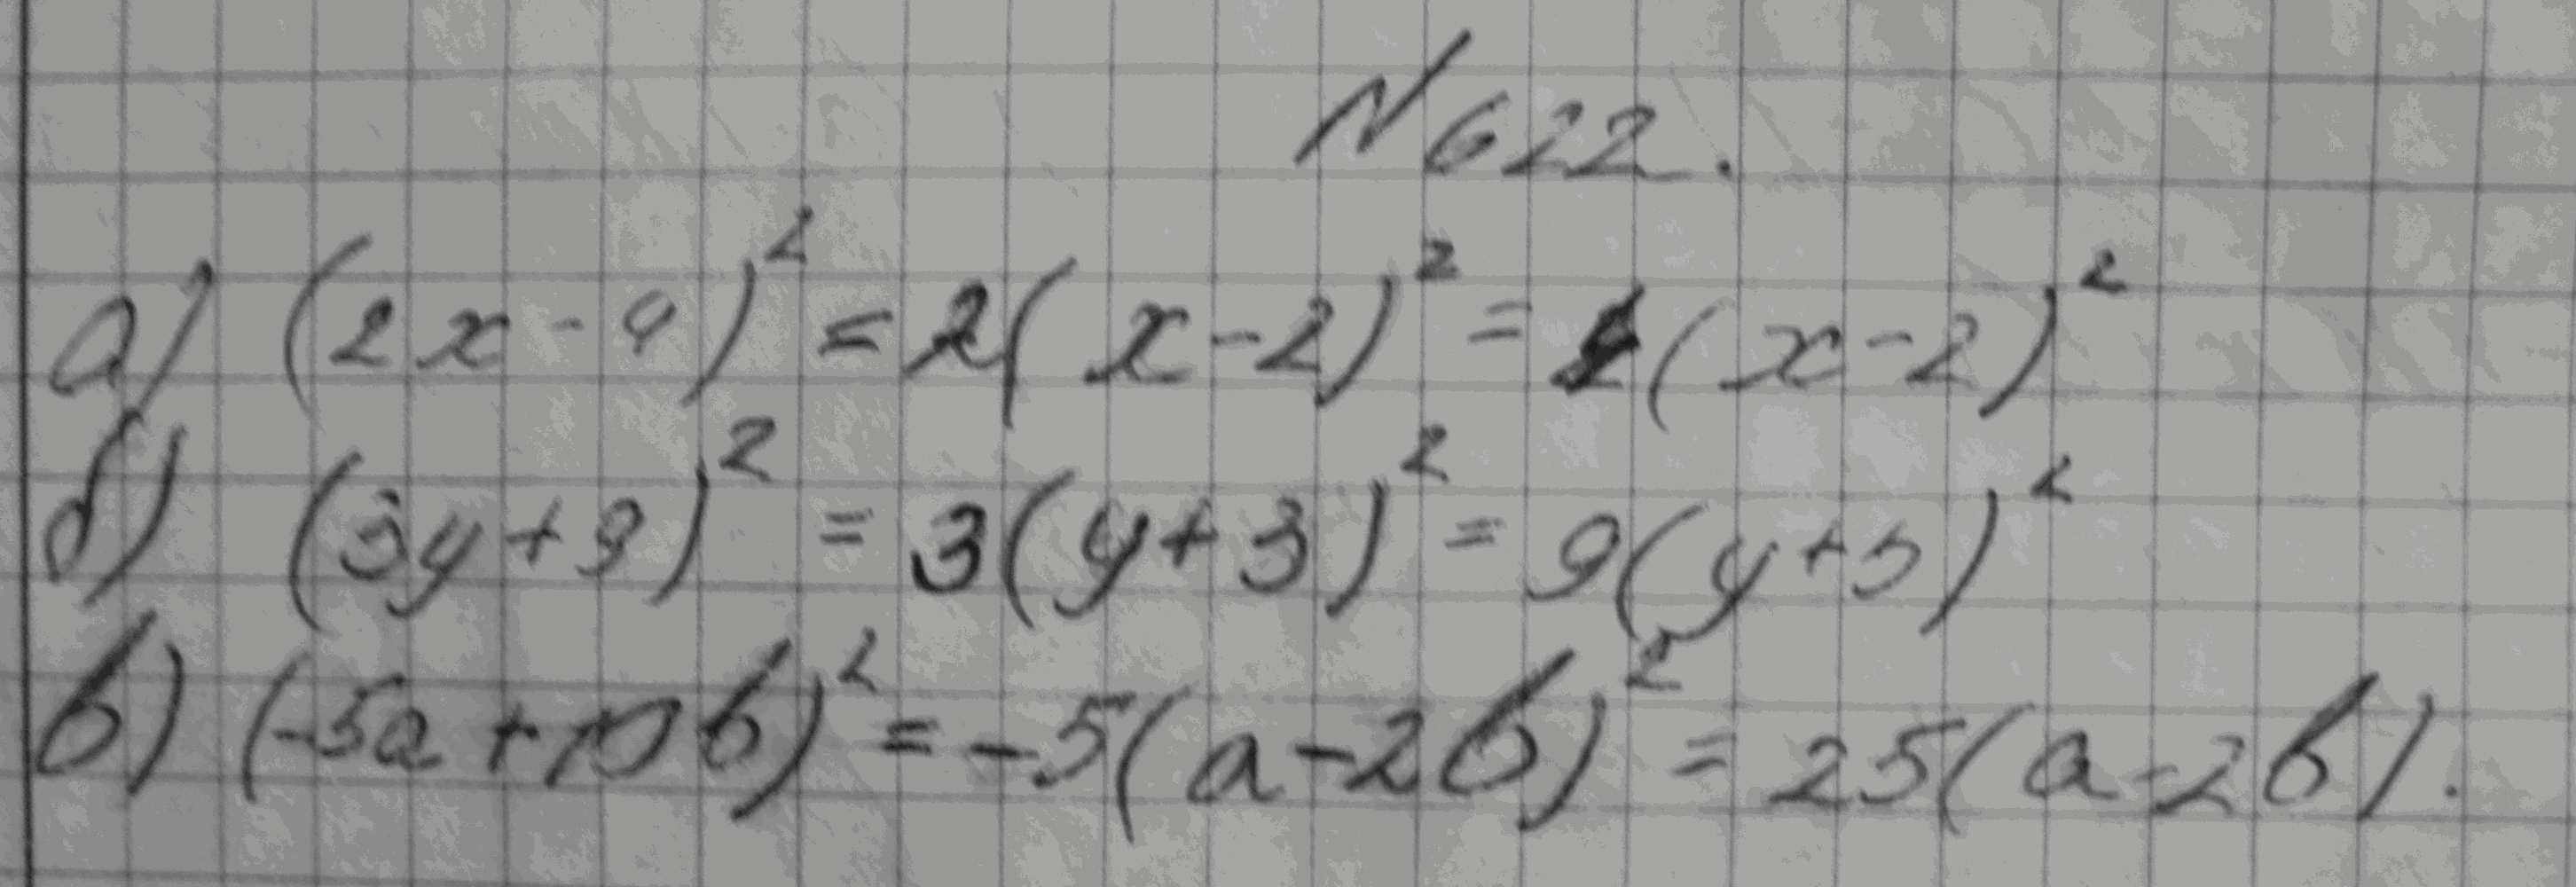 N 622.
а) (2x - 4)² = 2(x - 2)² = (x - 2)²
б) (3y + 9)² = 3(y + 3)² = 9(y + 3)²
в) (-5a + 10b)² = -5(a - 2b)² = 25(a - 2b).